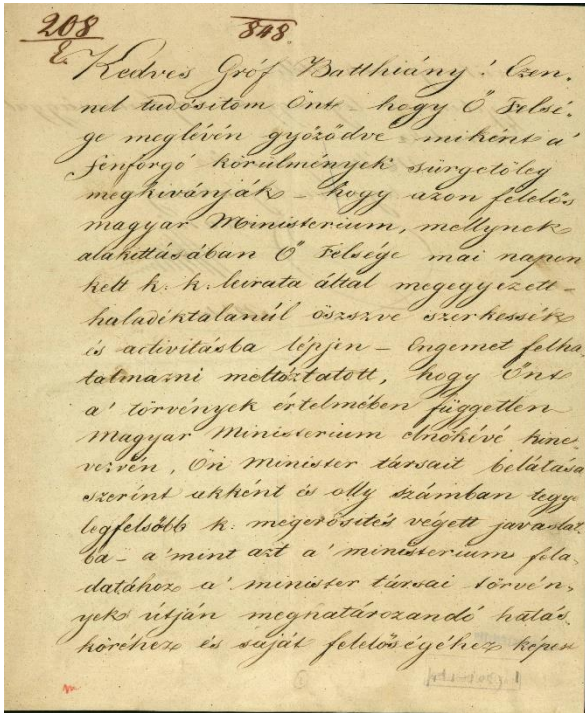 208
E.
848.
Kedves Gróf Batthiány! Ezen-
nel tudósitom Önt hogy Ő Felsé-
ge meglévén győződve miként a'
fenforgó körülmények sürgetőleg
megkivánják – hogy azon felelős
magyar Ministerium, mellynek
alakittásában Ő Felsége mai napon
kelt k. k. leirata által megegyezett –
haladéktalanúl öszszve szerkessék
és activitásba lépjen – Engemet felha-
talmazni méltóztatott, hogy Önt
a' törvények értelmében független
Magyar Ministerium elnökévé kine-
vezvén, Ön Minister társait belátása
szerint akként és olly számban tegye
legfelsőbb k. megerősités végett javaslat-
ba – a' mint azt a' ministerium fela-
datához a' minister társai törvén-
yek útján meghatározandó hatás-
köréhez és saját felelőségéhez képest